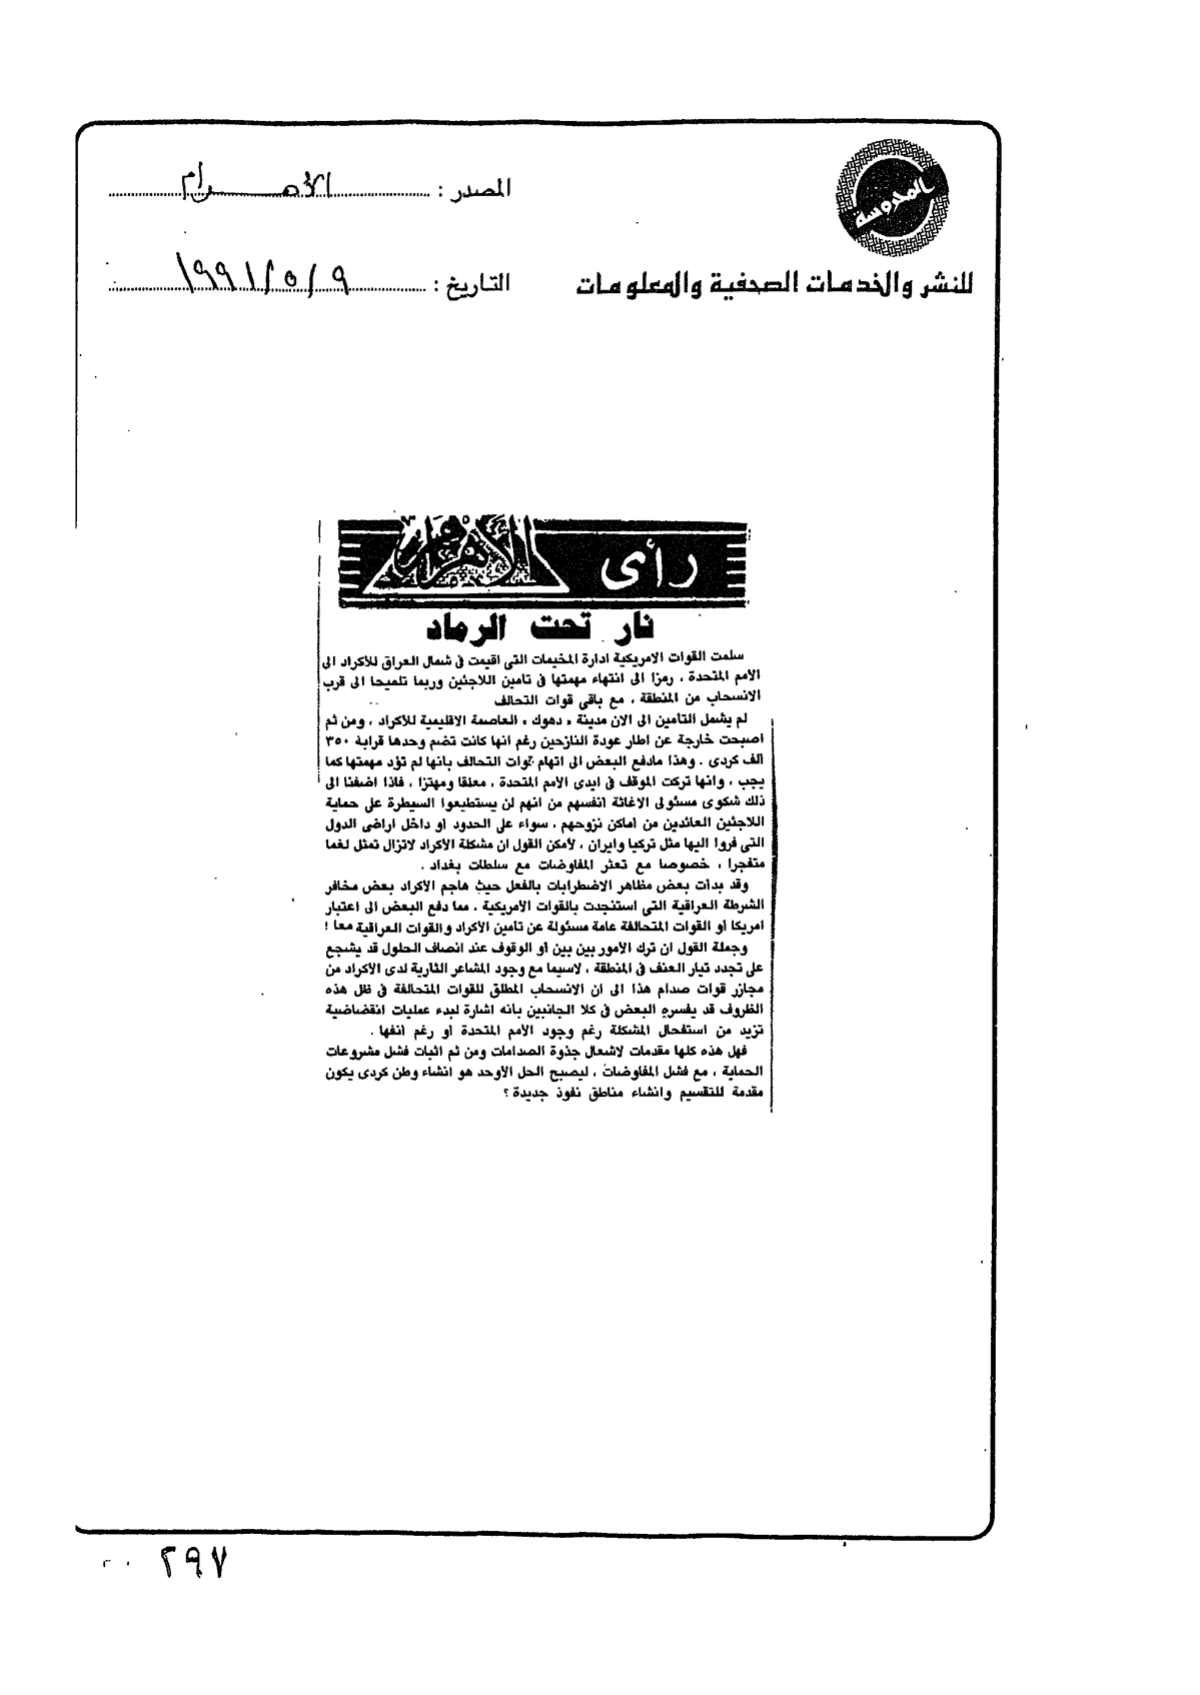 المحروسة
للنشر والخدمات الصحفية والمعلومات
المصدر : الأهرام
التاريخ : ٩ / ٥ / ١٩٩١
رأى الأهرام
نار تحت الرماد
سلمت القوات الامريكية ادارة المخيمات التى اقيمت فى شمال العراق للأكراد الى
الامم المتحدة ، رمزا الى انتهاء مهمتها فى تامين اللاجئين وربما تلميحا الى قرب
الانسحاب من المنطقة ، مع باقى قوات التحالف
لم يشمل التامين الى الان مدينة « دهوك » العاصمة الاقليمية للأكراد ، ومن ثم
اصبحت خارجة عن اطار عودة النازحين رغم انها كانت تضم وحدها قرابة ٣٥٠
الف كردى . وهذا مادفع البعض الى اتهام قوات التحالف بانها لم تؤد مهمتها كما
يجب ، وانها تركت الموقف فى ايدى الامم المتحدة ، معلقا ومهتزا ، فاذا اضفنا الى
ذلك شكوى مسئولى الاغاثة انفسهم من انهم لن يستطيعوا السيطرة على حماية
اللاجئين العائدين من اماكن نزوحهم ، سواء على الحدود او داخل اراضى الدول
التى فروا اليها مثل تركيا وايران ، لأمكن القول ان مشكلة الأكراد لاتزال تمثل لغما
متفجرا ، خصوصا مع تعثر المفاوضات مع سلطات بغداد .
وقد بدأت بعض مظاهر الاضطرابات بالفعل حيث هاجم الأكراد بعض مخافر
الشرطة العراقية التى استنجدت بالقوات الأمريكية ، مما دفع البعض الى اعتبار
امريكا أو القوات المتحالفة عامة مسئولة عن تامين الأكراد والقوات العراقية معا !
وجملة القول ان ترك الأمور بين بين أو الوقوف عند انصاف الحلول قد يشجع
على تجدد تيار العنف فى المنطقة ، لاسيما مع وجود المشاعر الثارية لدى الأكراد من
مجازر قوات صدام هذا الى ان الانسحاب المطلق للقوات المتحالفة فى ظل هذه
الظروف قد يفسره البعض فى كلا الجانبين بأنه اشارة لبدء عمليات انقضاضية
تزيد من استفحال المشكلة رغم وجود الأمم المتحدة او رغم انفها .
فهل هذه كلها مقدمات لاشعال جذوة الصدامات ومن ثم اثبات فشل مشروعات
الحماية ، مع فشل المفاوضات ، ليصبح الحل الأوحد هو انشاء وطن كردى يكون
مقدمة للتقسيم وانشاء مناطق نفوذ جديدة ؟
٢٩٧